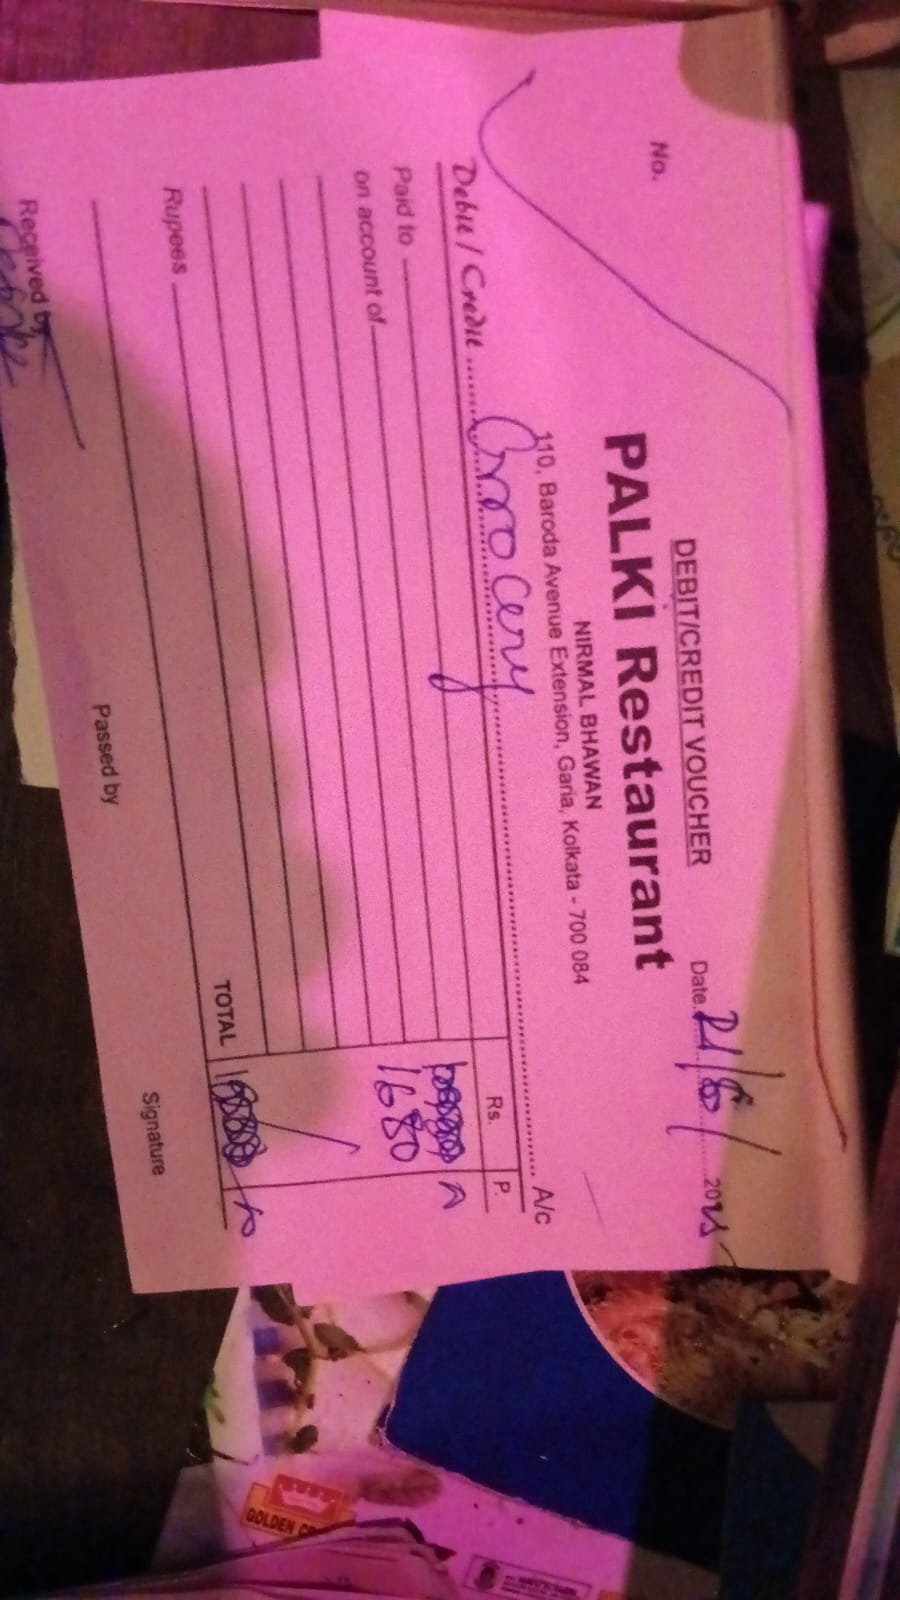 DEBIT/CREDIT VOUCHER
No.
Date. 21/6/ 2025
PALKI Restaurant
NIRMAL BHAWAN
110, Baroda Avenue Extension, Garia, Kolkata - 700 084
Debit / Credit Grocery A/c
Rs. P.
Paid to
on account of 1680
TOTAL
Rupees
Passed by
Signature
Received by
GOLDEN